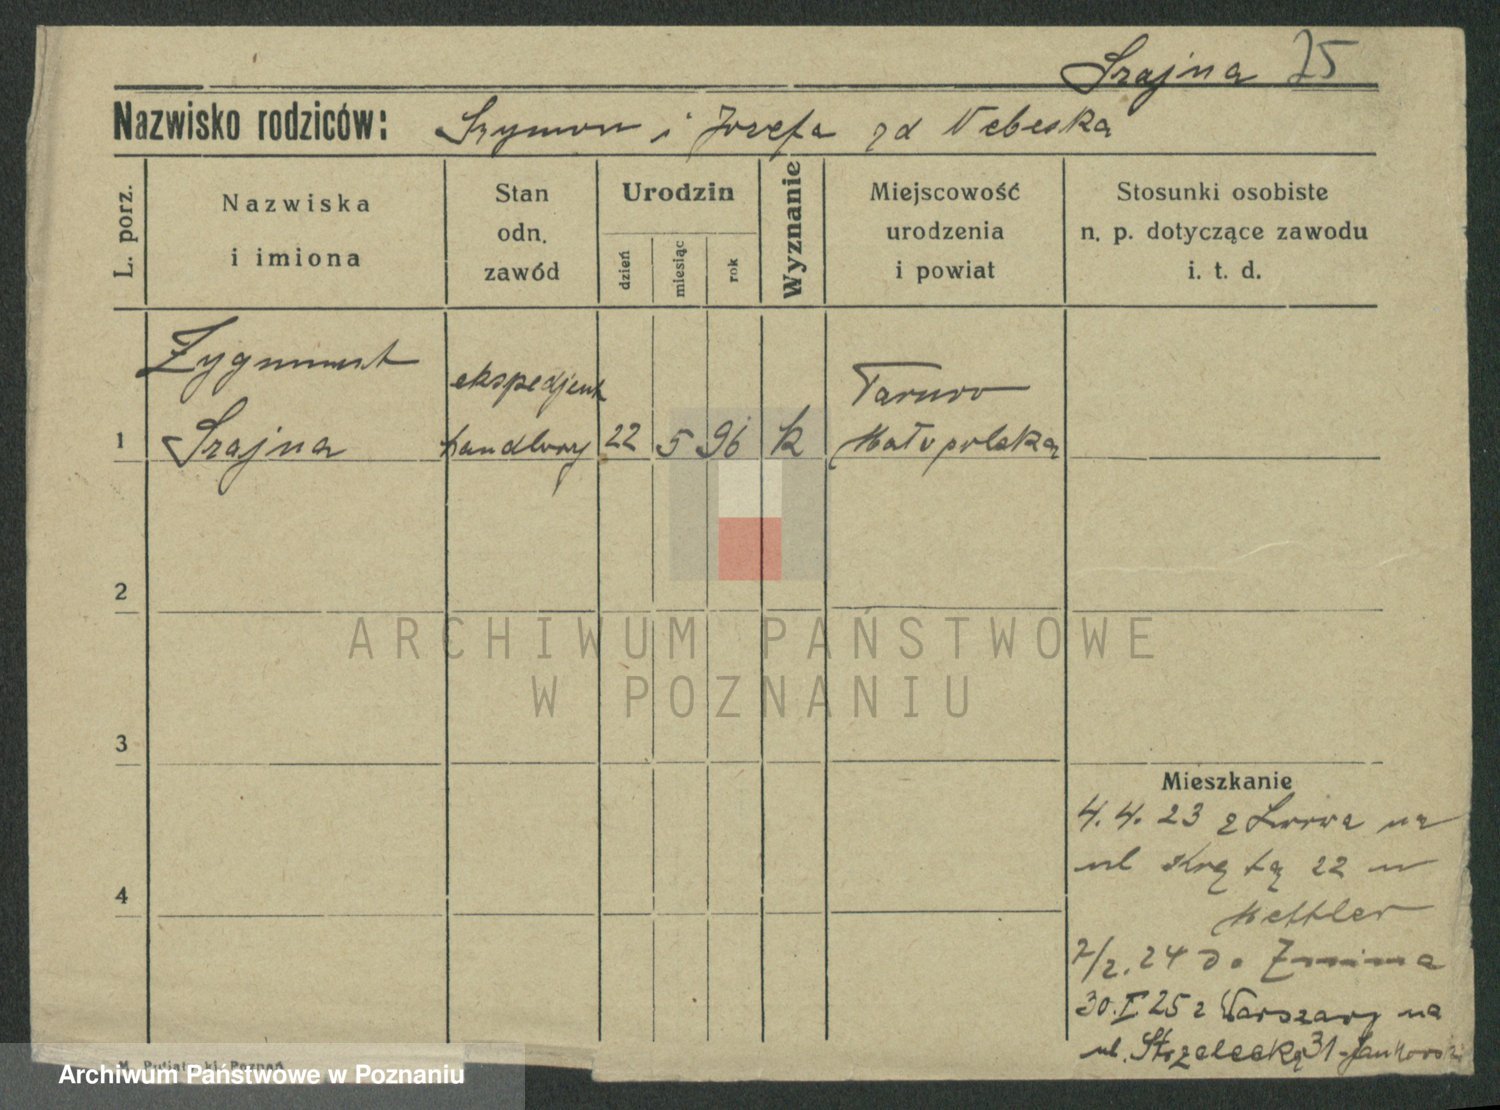 Szajna 75
Nazwisko rodziców: Szymon i Józefa zd Nebeska
L. porz.
Nazwiska
i imiona
Stan
odn.
zawód
Urodzin
dzień
miesiąc
rok
Wyznanie
Miejscowość
urodzenia
i powiat
Stosunki osobiste
n. p. dotyczące zawodu
i. t. d.
Zygmunt
Szajna
ekspedjent
handlowy
1
22 5 96 k
Małopolska
2
ARCHIWUM PAŃSTWOWE
W POZNANIU
3
Mieszkanie
4. 4. 23 z Lwowa na
ul Krętą 22 w
Mettler
4
7/2. 24 do Żnina
30.I 25 z Warszawy na
ul. Strzelecką 31 Jankowski
Poznań
Archiwum Państwowe w Poznaniu